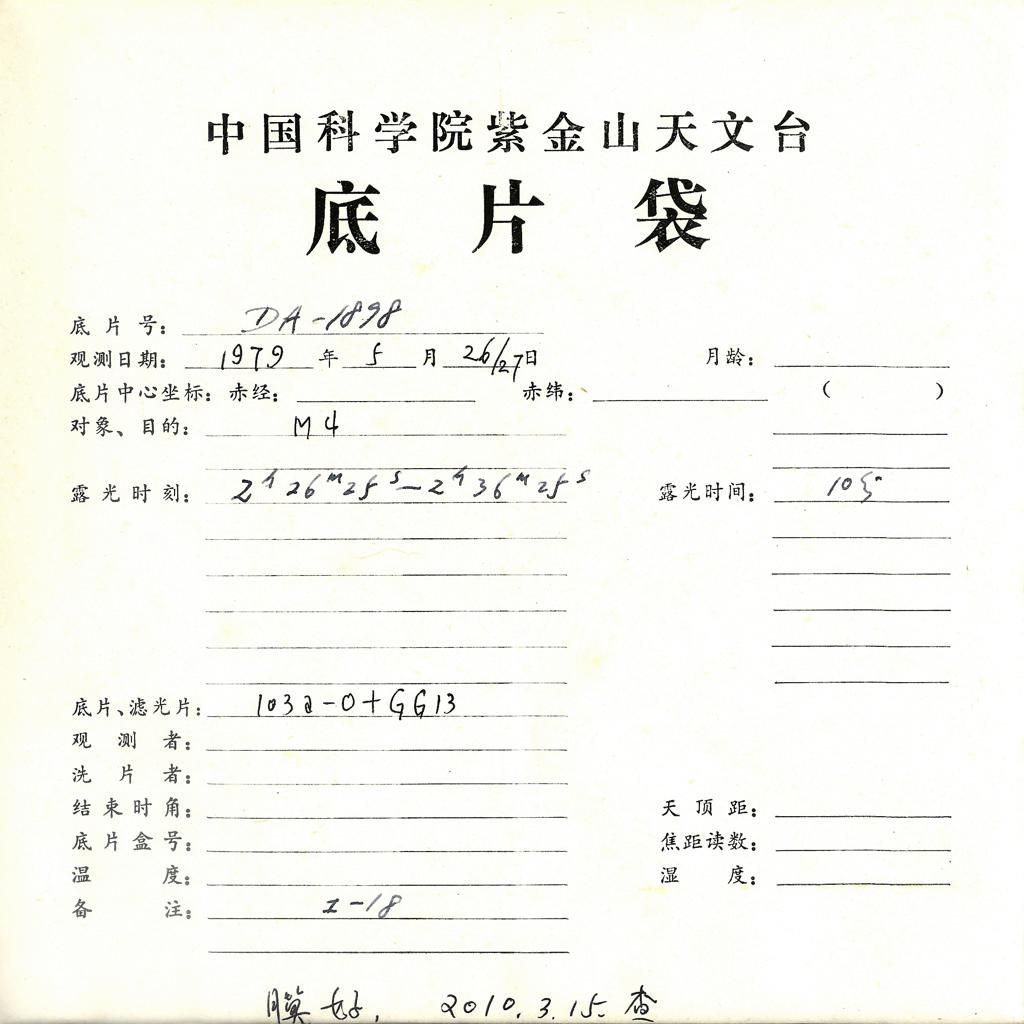 中国科学院紫金山天文台
底片袋
底片号: DA-1898
观测日期: 1979年5月26/27日 月龄:
底片中心坐标: 赤经: 赤纬: ( )
对象、目的: M4
露光时刻: 2h26m25s—2h36m25s 露光时间: 10分
底片、滤光片: 103a-O+GG13
观测者:
洗片者:
结束时角: 天顶距:
底片盒号: 焦距读数:
温度: 湿度:
备注: I-18
膜好, 2010.3.15.查